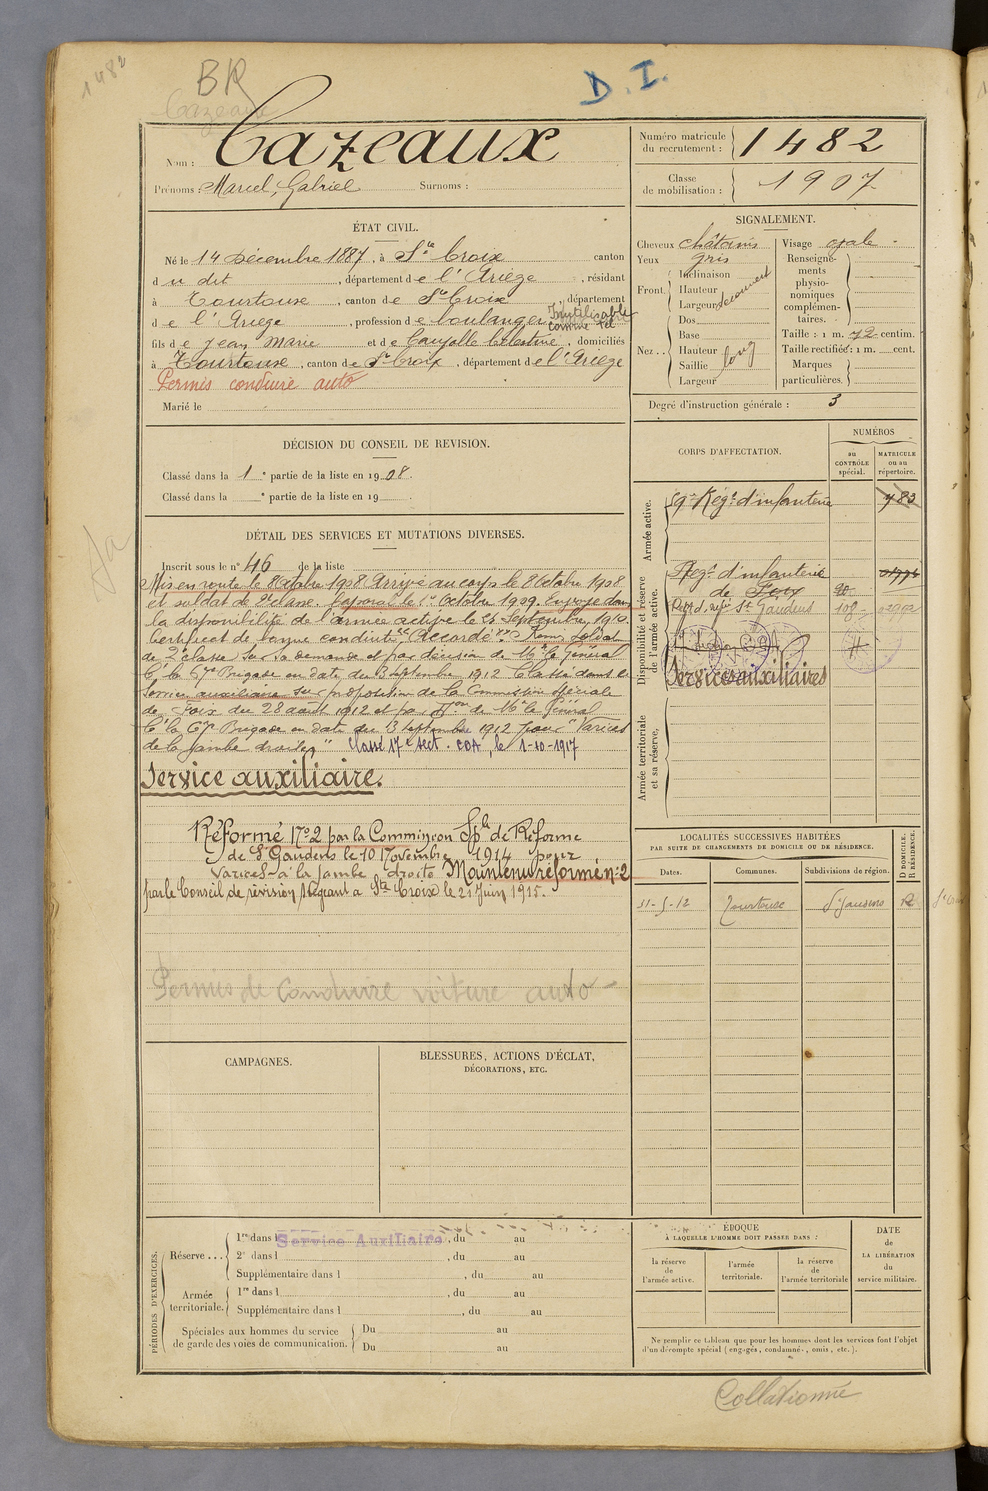 1482
BR
D. I.
Cazeaux
Nom : Cazeaux
Prénoms : Marcel, Gabriel Surnoms :
Numéro matricule du recrutement : 1482
Classe de mobilisation : 1907
ÉTAT CIVIL.
Né le 14 Décembre 1887, à Ste Croix canton
du dit, département de l'Ariège, résidant
à Tourtouse, canton de Ste Croix, département
de l'Ariège, profession de boulanger Inutilisable comme tel
fils de Jean Marie et de Célestine, domiciliés
à Tourtouse, canton de Ste Croix, département de l'Ariège
Permis conduire auto
Marié le
SIGNALEMENT.
Cheveux châtains
Yeux gris
Front. Inclinaison
Hauteur
Largeur découvert
Nez.. Dos
Base
Hauteur
Saillie long
Largeur
Visage ovale
Renseignements physionomiques complémentaires.
Taille : 1 m. 72 centim.
Taille rectifiée : 1 m. cent.
Marques particulières.
Degré d'instruction générale : 3
DÉCISION DU CONSEIL DE REVISION.
Classé dans la 1e partie de la liste en 1908.
Classé dans la e partie de la liste en 19
DÉTAIL DES SERVICES ET MUTATIONS DIVERSES.
Inscrit sous le n° 46 de la liste
Mis en route le 8 Octobre 1908 Arrivé au corps le 8 Octobre 1908
et soldat de 2e classe. Caporal le Octobre 1909. Envoyé dans
la disponibilité de l'armée active le 25 Septembre 1910
Certificat de bonne conduite "Accordé". Remis Soldat
de 2e classe sur sa demande et par décision de Mr le Général
Ct la 67e Brigade en date du 3 Septembre 1912 Classé dans le
Service auxiliaire sur proposition de la Commission spéciale
de Foix du 28 août 1912 et par Don de Mr le Général
Ct la 67e Brigade en date du 3 Septembre 1912 pour "Varices
de la jambe droite" Classé 17e sect. COA, le 1-10-1917
Service auxiliaire.
Réformé N°2 par la Commission Sple de Réforme
de St Gaudens le 10 Novembre 1914 pour
Varices à la jambe droite Maintenu réformé n°2
par le Conseil de révision siégeant à Ste Croix le 21 Juin 1915.
Permis de conduire voiture auto
CORPS D'AFFECTATION.
NUMÉROS
au CONTRÔLE spécial.
MATRICULE ou au répertoire.
Armée active.
59e Régt d'infanterie
Disponibilité et réserve de l'armée active.
Regt d'infanterie
de Foix
St Gaudens
Services auxiliaires
Armée territoriale et sa réserve,
LOCALITÉS SUCCESSIVES HABITÉES
PAR SUITE DE CHANGEMENTS DE DOMICILE OU DE RÉSIDENCE.
D DOMICILE. R RÉSIDENCE.
Dates. Communes. Subdivisions de région.
31-5-12 Tourtouse St Gaudens R
CAMPAGNES.
BLESSURES, ACTIONS D'ÉCLAT,
DÉCORATIONS, ETC.
PÉRIODES D'EXERCICES.
Réserve... 1re dans l Service Auxiliaire, du au
2e dans l , du au
Supplémentaire dans l , du au
Armée territoriale. 1re dans l , du au
Supplémentaire dans l , du au
Spéciales aux hommes du service de garde des voies de communication. Du au
Du au
ÉPOQUE
À LAQUELLE L'HOMME DOIT PASSER DANS :
la réserve de l'armée active.
l'armée territoriale.
la réserve de l'armée territoriale
DATE de LA LIBÉRATION du service militaire.
Ne remplir ce tableau que pour les hommes dont les services font l'objet
d'un décompte spécial (engagés, condamnés, omis, etc.).
Collationné